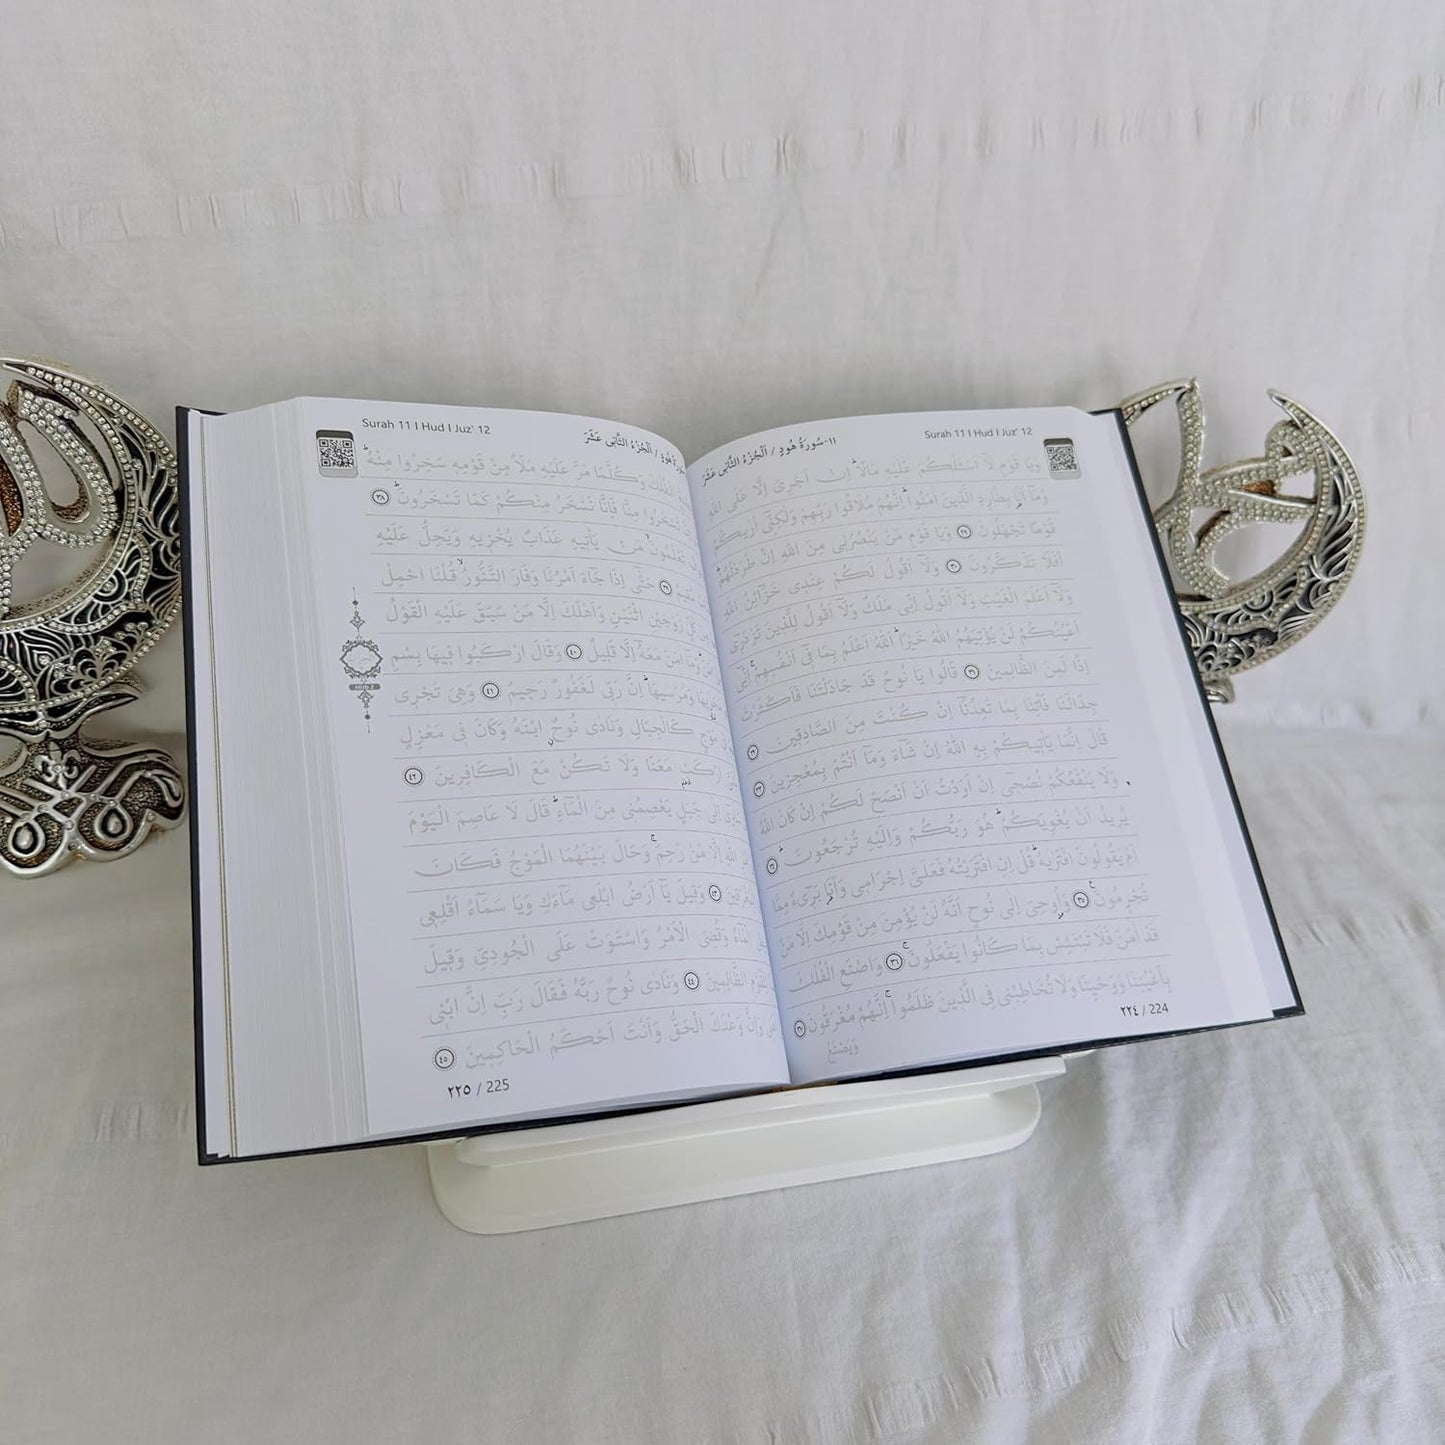 Surah 11 I Hud I Juz' 12
١١-سُورَةُ هُودٍ / اَلْجُزْءُ الثَّانِى عَشَرَ
وَيَا قَوْمِ لَآ اَسْـَٔلُكُمْ عَلَيْهِ مَالًاۜ اِنْ اَجْرِىَ اِلَّا عَلَى اللّٰهِ
وَمَآ اَنَا۬ بِطَارِدِ الَّذِينَ اٰمَنُواۜ اِنَّهُمْ مُلَاقُوا رَبِّهِمْ وَلٰكِنِّى اَرٰيكُمْ
قَوْمًا تَجْهَلُونَ ٢٩ وَيَا قَوْمِ مَنْ يَنْصُرُنِى مِنَ اللّٰهِ اِنْ طَرَدْتُهُمْ
اَفَلَا تَذَكَّرُونَ ٣٠ وَلَآ اَقُولُ لَكُمْ عِنْدِى خَزَآئِنُ اللّٰهِ
وَلَآ اَعْلَمُ الْغَيْبَ وَلَآ اَقُولُ اِنِّى مَلَكٌ وَلَآ اَقُولُ لِلَّذِينَ تَزْدَرِى
اَعْيُنُكُمْ لَنْ يُؤْتِيَهُمُ اللّٰهُ خَيْرًاۜ اَللّٰهُ اَعْلَمُ بِمَا فِى اَنْفُسِهِمْۚ اِنِّى
اِذًا لَمِنَ الظَّالِمِينَ ٣١ قَالُوا يَا نُوحُ قَدْ جَادَلْتَنَا فَاَكْثَرْتَ
جِدَالَنَا فَأْتِنَا بِمَا تَعِدُنَآ اِنْ كُنْتَ مِنَ الصَّادِقِينَ ٣٢
قَالَ اِنَّمَا يَأْتِيكُمْ بِهِ اللّٰهُ اِنْ شَآءَ وَمَآ اَنْتُمْ بِمُعْجِزِينَ ٣٣
وَلَا يَنْفَعُكُمْ نُصْحِى اِنْ اَرَدْتُ اَنْ اَنْصَحَ لَكُمْ اِنْ كَانَ اللّٰهُ
يُرِيدُ اَنْ يُغْوِيَكُمْۜ هُوَ رَبُّكُمْ وَاِلَيْهِ تُرْجَعُونَۜ ٣٤
اَمْ يَقُولُونَ افْتَرٰيهُۜ قُلْ اِنِ افْتَرَيْتُهُ فَعَلَىَّ اِجْرَامِى وَاَنَا۬ بَرِىٓءٌ مِمَّا
تُجْرِمُونَۚ ٣٥ وَاُو۫حِىَ اِلٰى نُوحٍ اَنَّهُ لَنْ يُؤْمِنَ مِنْ قَوْمِكَ اِلَّا مَنْ
قَدْ اٰمَنَ فَلَا تَبْتَئِسْ بِمَا كَانُوا يَفْعَلُونَۚ ٣٦ وَاصْنَعِ الْفُلْكَ
بِاَعْيُنِنَا وَوَحْيِنَا وَلَا تُخَاطِبْنِى فِى الَّذِينَ ظَلَمُواۚ اِنَّهُمْ مُغْرَقُونَ ٣٧
وَيَصْنَعُ
٢٢٤ / 224
Surah 11 I Hud I Juz' 12
سُورَةُ هُودٍ / اَلْجُزْءُ الثَّانِى عَشَرَ
الْفُلْكَ وَكُلَّمَا مَرَّ عَلَيْهِ مَلَاٌ مِنْ قَوْمِهِ سَخِرُوا مِنْهُۜ
تَسْخَرُوا مِنَّا فَاِنَّا نَسْخَرُ مِنْكُمْ كَمَا تَسْخَرُونَۜ ٣٨
تَعْلَمُونَۙ مَنْ يَأْتِيهِ عَذَابٌ يُخْزِيهِ وَيَحِلُّ عَلَيْهِ
مُقِيمٌ ٣٩ حَتّٰٓى اِذَا جَآءَ اَمْرُنَا وَفَارَ التَّنُّورُۙ قُلْنَا احْمِلْ
زَوْجَيْنِ اثْنَيْنِ وَاَهْلَكَ اِلَّا مَنْ سَبَقَ عَلَيْهِ الْقَوْلُ
وَمَآ اٰمَنَ مَعَهُٓ اِلَّا قَلِيلٌ ٤٠ وَقَالَ ارْكَبُوا فِيهَا بِسْمِ
وَمُرْسٰيهَاۜ اِنَّ رَبِّى لَغَفُورٌ رَحِيمٌ ٤١ وَهِىَ تَجْرِى
مَوْجٍ كَالْجِبَالِ وَنَادٰى نُوحٌۨ ابْنَهُ وَكَانَ فِى مَعْزِلٍ
ارْكَبْ مَعَنَا وَلَا تَكُنْ مَعَ الْكَافِرِينَ ٤٢
اِلٰى جَبَلٍ يَعْصِمُنِى مِنَ الْمَآءِۜ قَالَ لَا عَاصِمَ الْيَوْمَ
اللّٰهِ اِلَّا مَنْ رَحِمَۚ وَحَالَ بَيْنَهُمَا الْمَوْجُ فَكَانَ
٤٣ وَقِيلَ يَآ اَرْضُ ابْلَعِى مَآءَكِ وَيَا سَمَآءُ اَقْلِعِى
الْمَآءُ وَقُضِىَ الْاَمْرُ وَاسْتَوَتْ عَلَى الْجُودِىِّ وَقِيلَ
لِلْقَوْمِ الظَّالِمِينَ ٤٤ وَنَادٰى نُوحٌ رَبَّهُ فَقَالَ رَبِّ اِنَّ ابْنِى
وَاِنَّ وَعْدَكَ الْحَقُّ وَاَنْتَ اَحْكَمُ الْحَاكِمِينَ ٤٥
Hizb 2
٢٢٥ / 225